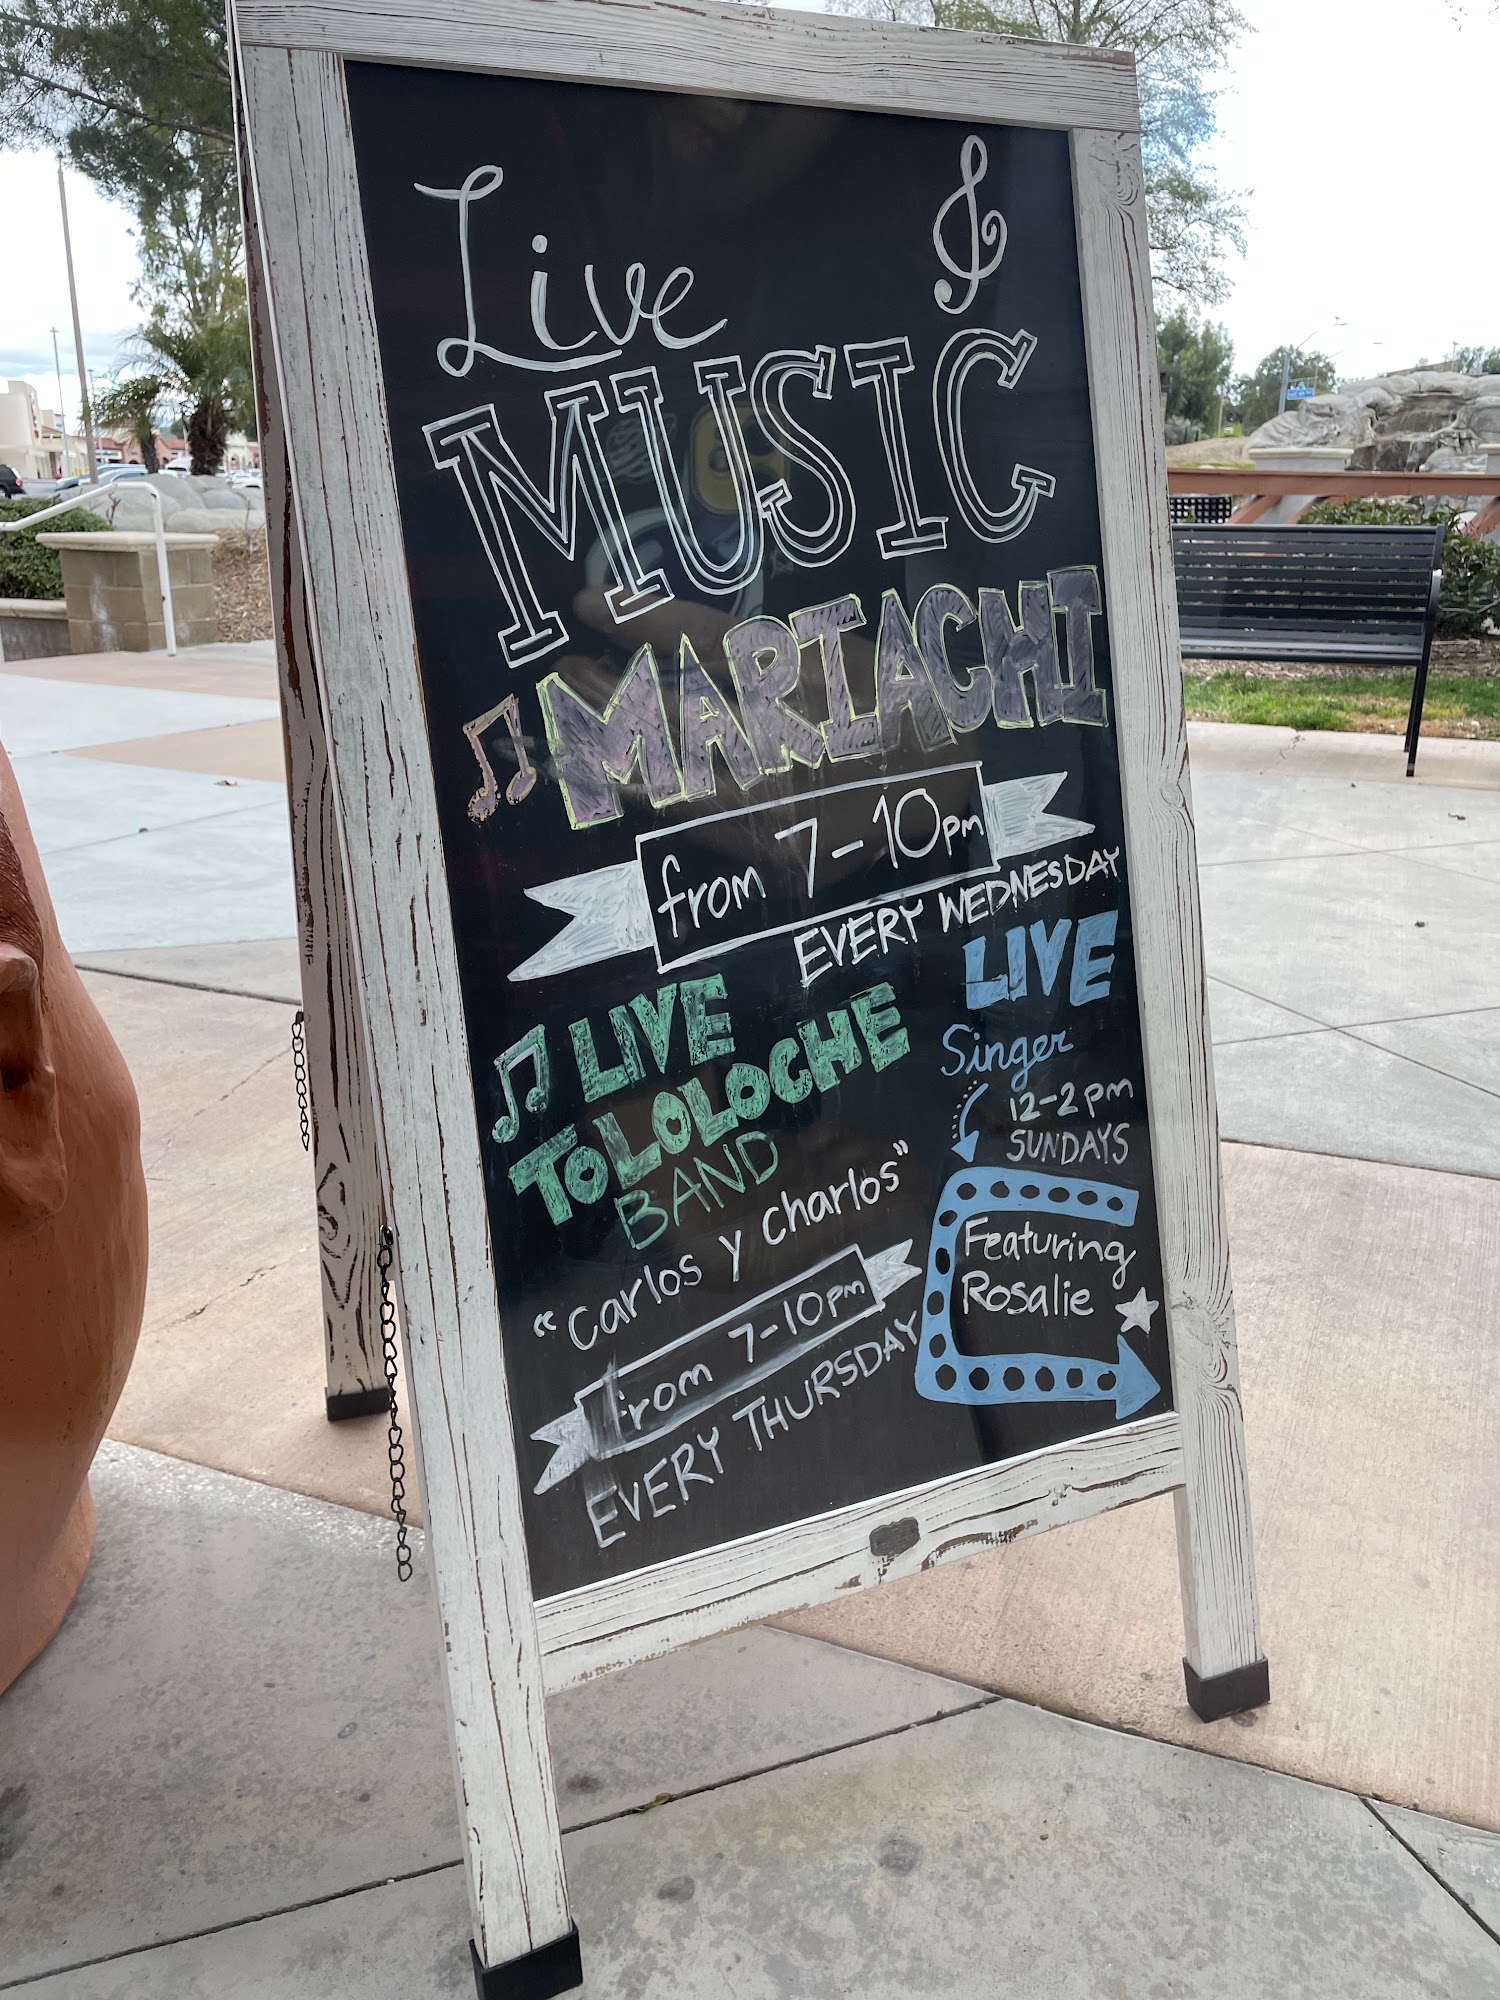 Live
MUSIC
MARIACHI
from 7-10pm
EVERY WEDNESDAY
LIVE
TOLOLOCHE
BAND
"Carlos y Charlos"
from 7-10pm
EVERY THURSDAY
LIVE
Singer
12-2pm
SUNDAYS
Featuring
Rosalie